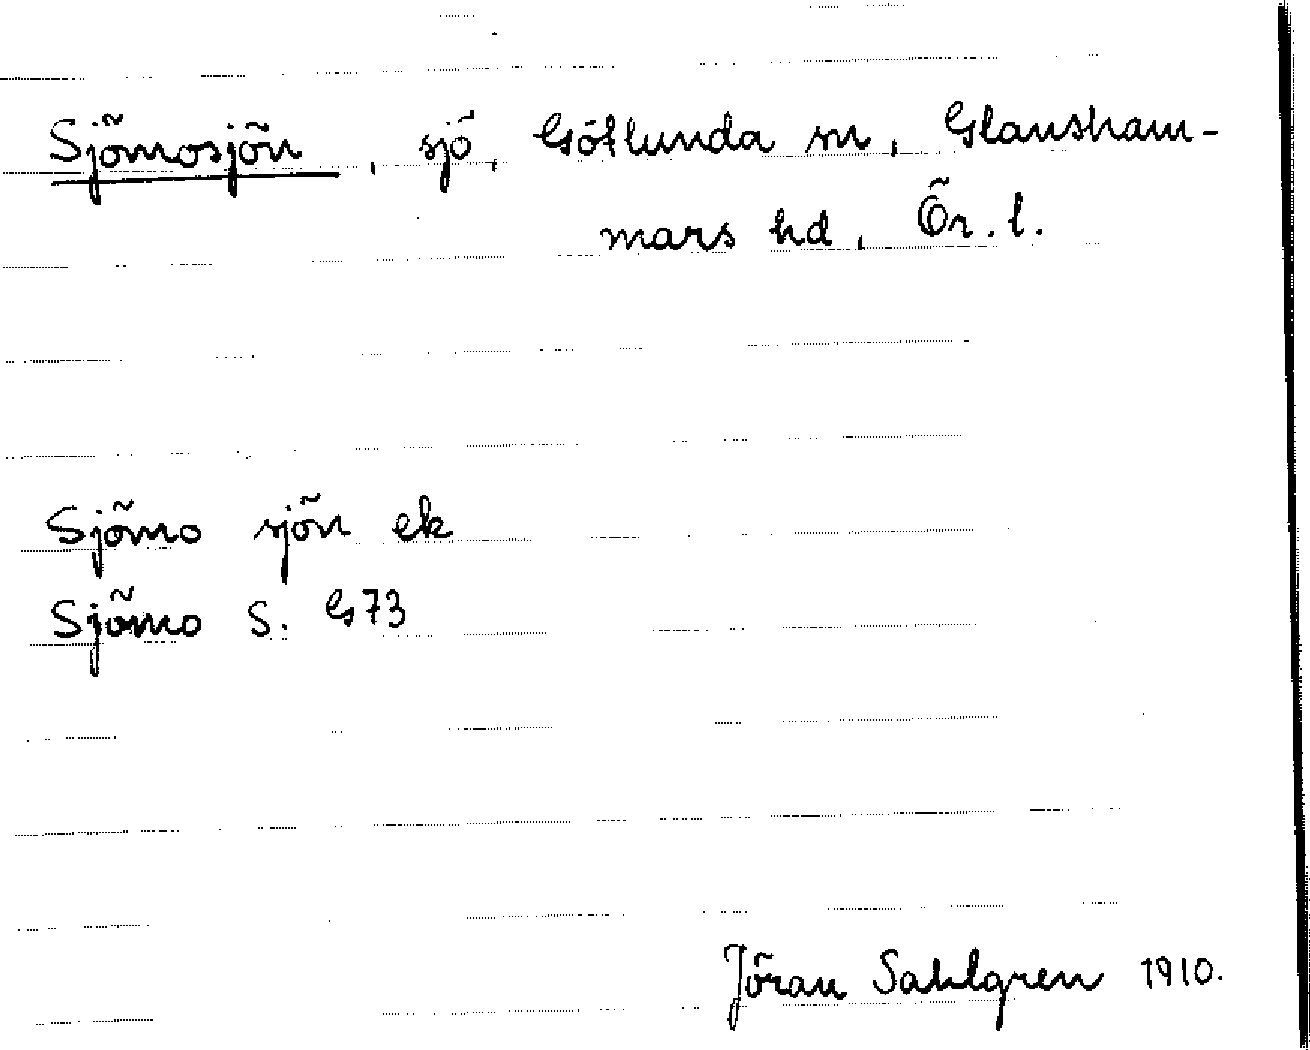 Sjömosjön, sjö, Götlunda sn, Glansham-
mars hd, Ör. l.
Sjömo sjön ek
Sjömo S. G73
Jöran Sahlgren 1910.